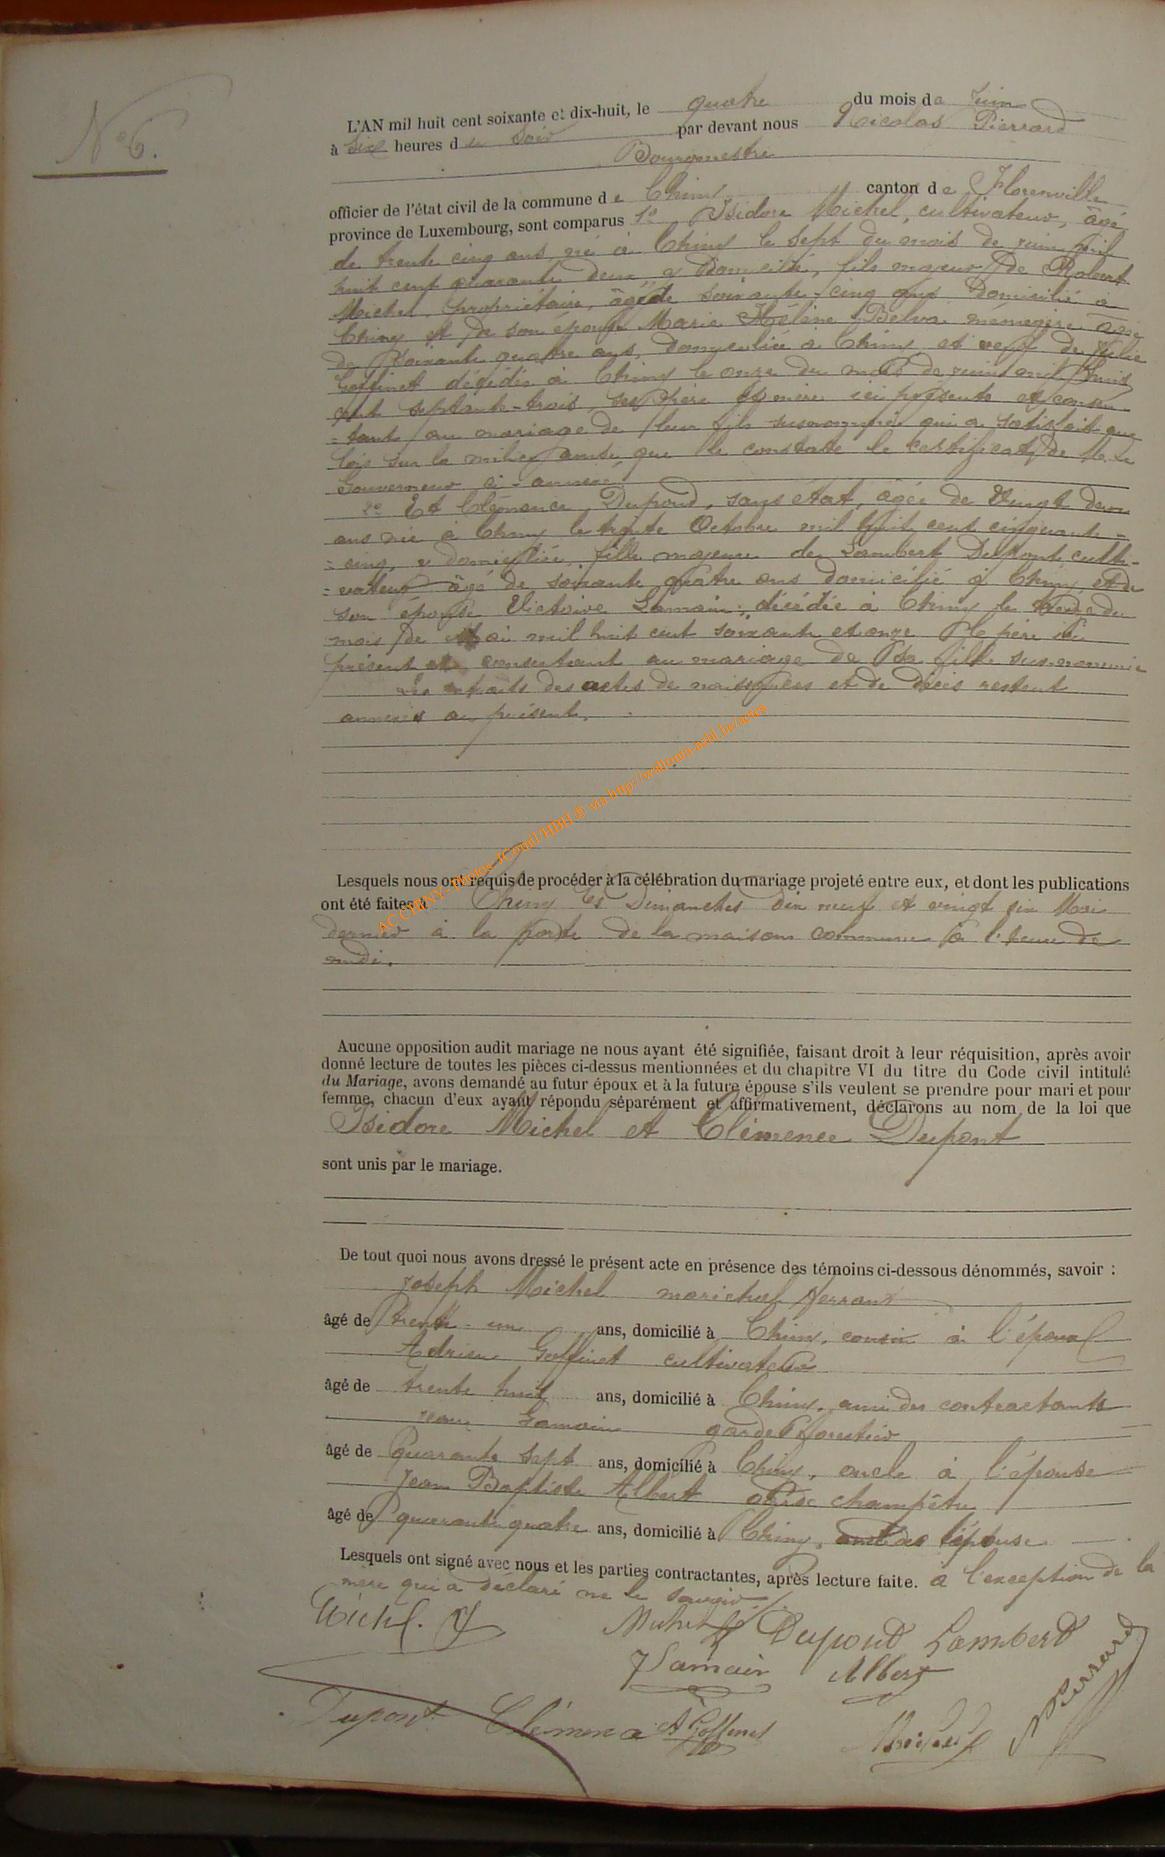 N° 6.
L'AN mil huit cent soixante et dix-huit, le quatre du mois de Juin
à Six heures du Soir par devant nous Nicolas Pierrard
Bourgmestre
officier de l'état civil de la commune de Chiny canton de Florenville
province de Luxembourg, sont comparus 1° Isidore Michel, cultivateur, âgé
de trente cinq ans, né à Chiny le sept du mois de juin mil
huit cent quarante deux y domicilié, fils majeur de Robert
Michel, propriétaire, âgé de soixante cinq ans domicilié à
Chiny et de son épouse Marie Hélène Belva ménagère âgée
de Soixante quatre ans, domiciliée à Chiny et veuf de Julie
Goffinet décédée à Chiny le onze du mois de juin mil huit
cent septante-trois ses père et mère ici présents et consen
-tant au mariage de leur fils susnommé qui a satisfait aux
lois sur la milice ainsi que le constate le certificat de Mr le
Gouverneur ci-annexé
2° Et Clémence Dupond, sans état, âgée de Vingt deux
ans née à Chiny le trente Octobre mil huit cent cinquante-
-cinq, y domiciliée, fille majeure de Lambert Dupont culti-
-vateur âgé de soixante quatre ans domicilié à Chiny et de
son épouse Victoire Lamain, décédée à Chiny le du
mois de Mai mil huit cent soixante et onze le père ici
présent et consentant au mariage de sa fille susnommée
Les extraits des actes de naissances et de décès restent
annexés au présent.
ACCHINY- photos JComil/HDH.B via http://wallonia-asbl.be/actes
Lesquels nous ont requis de procéder à la célébration du mariage projeté entre eux, et dont les publications
ont été faites à Chiny les Dimanches dix neuf et vingt six Mai
dernier à la porte de la maison commune à l'heure de
midi.
Aucune opposition audit mariage ne nous ayant été signifiée, faisant droit à leur réquisition, après avoir
donné lecture de toutes les pièces ci-dessus mentionnées et du chapitre VI du titre du Code civil intitulé
du Mariage, avons demandé au futur époux et à la future épouse s'ils veulent se prendre pour mari et pour
femme, chacun d'eux ayant répondu séparément et affirmativement, déclarons au nom de la loi que
Isidore Michel et Clémence Dupont
sont unis par le mariage.
De tout quoi nous avons dressé le présent acte en présence des témoins ci-dessous dénommés, savoir :
Joseph Michel marichal ferrant
âgé de trente-un ans, domicilié à Chiny, cousin à l'époux
Adrien Goffinet cultivateur
âgé de trente huit ans, domicilié à Chiny, ami des contractants
Jean Lamain garde forestier
âgé de quarante sept ans, domicilié à Chiny, oncle à l'épouse
Jean Baptiste Albert garde champêtre
âgé de quarante quatre ans, domicilié à Chiny, l'épouse
Lesquels ont signé avec nous et les parties contractantes, après lecture faite. à l'exception de la
mère qui a déclaré ne le savoir
Michel Michel Dupond Lambert
J Lamain Albert
Dupont Clémence A Goffinet Michel NPierrard